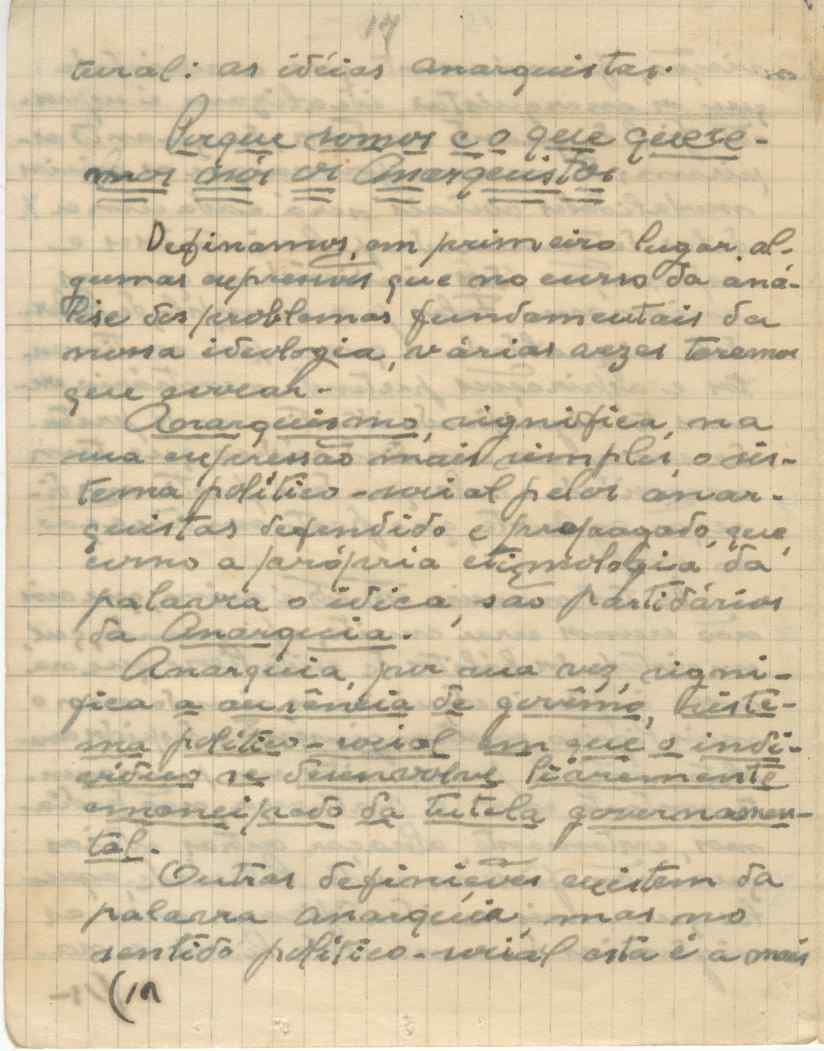 14
tural: as idéias anarquistas.
Porque somos e o que quere-
mos nós os Anarquistas
Definamos, em primeiro lugar, al-
gumas expressões que no curso da aná-
lise dos problemas fundamentais da
nossa ideologia, várias vezes teremos
que evocar.
Anarquismo, significa, na
sua expressão mais simples, o sis-
tema político-social pelos anar-
quistas defendido e propagado, que,
como a própria etimologia da
palavra o idica, são partidários
da Anarquia.
Anarquia, por sua vez, signi-
fica a ausência de govêrno, sistê-
ma político-social em que o indi-
víduo se desenvolve livremente
emancipado da tutela governamen-
tal.
Outras definições existem da
palavra anarquia, mas no
sentido político-social esta é a mais